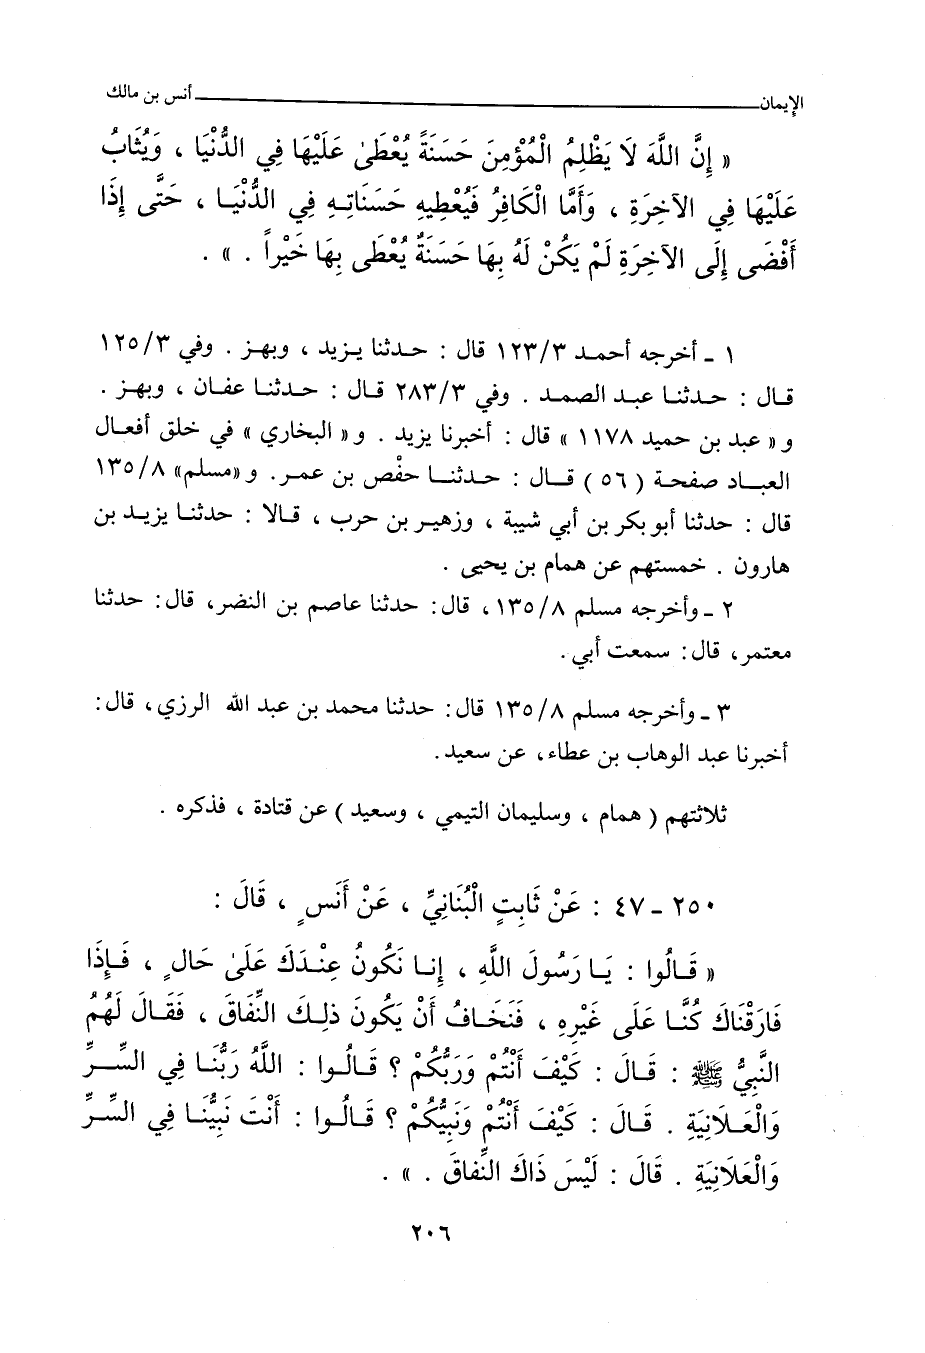 الإيمان ــــــــ أنس بن مالك
« إِنَّ اللَّهَ لَا يَظْلِمُ الْمُؤْمِنَ حَسَنَةً يُعْطَىٰ عَلَيْهَا فِي الدُّنْيَا ، وَيُثَابُ
عَلَيْهَا فِي الآخِرَةِ ، وَأَمَّا الْكَافِرُ فَيُعْطِيهِ حَسَنَاتِهِ فِي الدُّنْيَا ، حَتَّى إِذَا
أَفْضَى إِلَى الآخِرَةِ لَمْ يَكُنْ لَهُ بِهَا حَسَنَةٌ يُعْطَى بِهَا خَيْراً . » .
١ ـ أخرجه أحمد ١٢٣/٣ قال : حدثنا يزيد ، وبهز . وفي ١٢٥/٣
قال : حدثنا عبد الصمد . وفي ٢٨٣/٣ قال : حدثنا عفان ، وبهز .
و « عبد بن حميد ١١٧٨ » قال : أخبرنا يزيد . و « البخاري » في خلق أفعال
العباد صفحة ( ٥٦ ) قال : حدثنا حفْص بن عمر . و «مسلم» ١٣٥/٨
قال : حدثنا أبو بكر بن أبي شيبة ، وزهير بن حرب ، قالا : حدثنا يزيد بن
هارون . خمستهم عن همام بن يحيى .
٢ ـ وأخرجه مسلم ١٣٥/٨ ، قال: حدثنا عاصم بن النضر، قال: حدثنا
معتمر، قال: سمعت أبي.
٣ ـ وأخرجه مسلم ١٣٥/٨ قال: حدثنا محمد بن عبد الله الرزي، قال:
أخبرنا عبد الوهاب بن عطاء، عن سعيد.
ثلاثتهم ( همام ، وسليمان التيمي ، وسعيد ) عن قتادة ، فذكره .
٢٥٠ ـ ٤٧ : عَنْ ثَابِتٍ الْبُنَانِيِّ ، عَنْ أَنَسٍ ، قَالَ :
« قَالُوا : يَا رَسُولَ اللَّهِ ، إِنا نَكُونُ عِنْدَكَ عَلَىٰ حَالٍ ، فَإِذَا
فَارَقْنَاكَ كُنَّا عَلَى غَيْرِهِ ، فَنَخَافُ أَنْ يَكُونَ ذلِكَ النِّفَاقَ ، فَقَالَ لَهُمُ
النَّبِيُّ ﷺ : قَالَ : كَيْفَ أَنْتُمْ وَرَبُّكُمْ ؟ قَالُوا : اللَّهُ رَبُّنَا فِي السِّرِّ
وَالْعَلَانِيَةِ . قَالَ : كَيْفَ أَنْتُمْ وَنَبِيُّكُمْ ؟ قَالُوا : أَنْتَ نَبِيُّنَا فِي السِّرِّ
وَالْعَلَانِيَةِ . قَالَ : لَيْسَ ذَاكَ النِّفاقَ . » .
٢٠٦